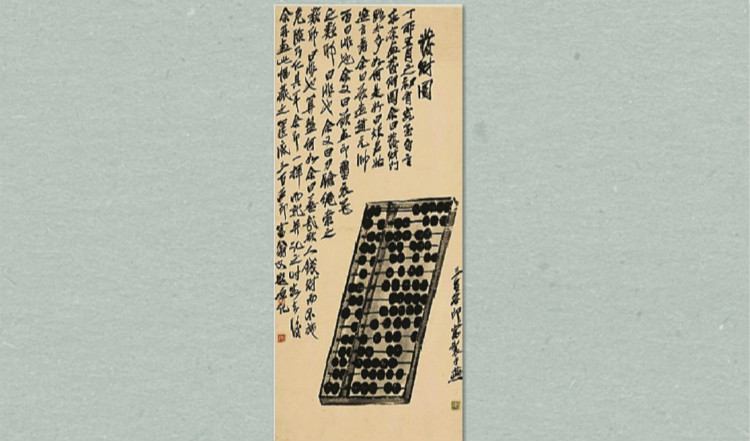 發財圖
丁卯五月之初有客至自言
求余画發財圖余曰發財門
路太多如何是好曰煩君姑
妄言者余曰欲画趙元帥
否曰非也余又曰欲画印璽衣冠
之類耶曰非也余又曰刀槍繩索之
類耶曰非也算盤何如余曰善哉欲人錢財而不施
危險乃仁具耳余即一揮而就并記之時客去後
余再画此幅藏之篋底三百石印富翁又題原記
三百石印富翁